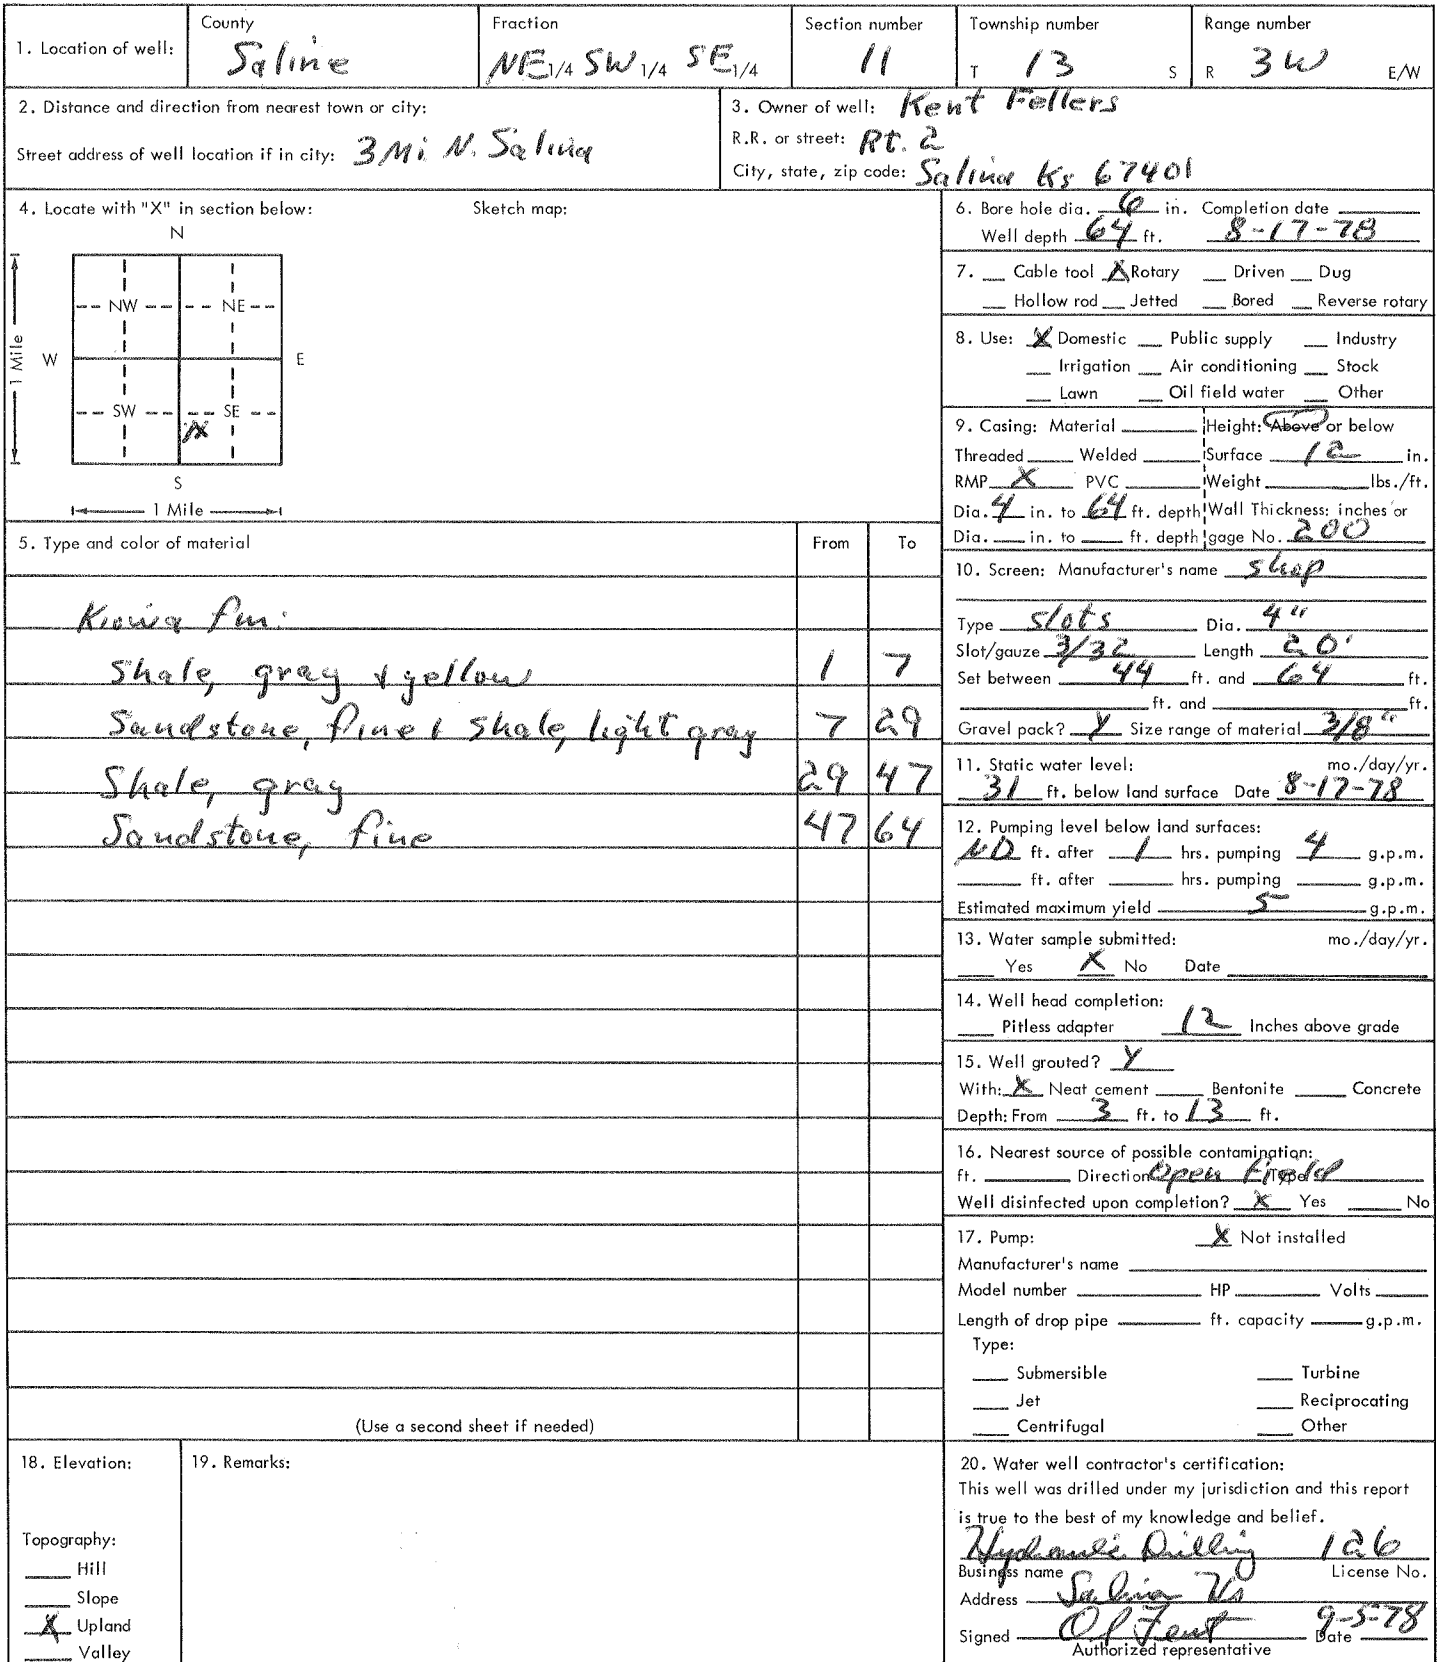 1. Location of well: County Saline Fraction NE 1/4 SW 1/4 SE 1/4 Section number 11 Township number T 13 S Range number R 3W E/W
2. Distance and direction from nearest town or city:
Street address of well location if in city: 3 Mi. N. Salina
3. Owner of well: Kent Fellers
R.R. or street: Rt. 2
City, state, zip code: Salina Ks 67401
4. Locate with "X" in section below: Sketch map:
N
NW NE
1 Mile W E
SW SE
X
S
1 Mile
5. Type and color of material From To
Kiowa fm.
Shale, gray & yellow 1 7
Sandstone, fine & shale, light gray 7 29
Shale, gray 29 47
Sandstone, fine 47 64
(Use a second sheet if needed)
6. Bore hole dia. 6 in. Completion date
Well depth 64 ft. 8-17-78
7. Cable tool X Rotary Driven Dug
Hollow rod Jetted Bored Reverse rotary
8. Use: X Domestic Public supply Industry
Irrigation Air conditioning Stock
Lawn Oil field water Other
9. Casing: Material Height: Above or below
Threaded Welded Surface 12 in.
RMP X PVC Weight lbs./ft.
Dia. 4 in. to 64 ft. depth Wall Thickness: inches or
Dia. in. to ft. depth gage No. 200
10. Screen: Manufacturer's name shop
Type slots Dia. 4"
Slot/gauze 3/32 Length 20'
Set between 44 ft. and 64 ft.
ft. and ft.
Gravel pack? Y Size range of material 3/8"
11. Static water level: mo./day/yr.
31 ft. below land surface Date 8-17-78
12. Pumping level below land surfaces:
ND ft. after 1 hrs. pumping 4 g.p.m.
ft. after hrs. pumping g.p.m.
Estimated maximum yield 5 g.p.m.
13. Water sample submitted: mo./day/yr.
Yes X No Date
14. Well head completion:
Pitless adapter 12 Inches above grade
15. Well grouted? Y
With: X Neat cement Bentonite Concrete
Depth: From 3 ft. to 13 ft.
16. Nearest source of possible contamination:
ft. Direction Open Field Type
Well disinfected upon completion? X Yes No
17. Pump: X Not installed
Manufacturer's name
Model number HP Volts
Length of drop pipe ft. capacity g.p.m.
Type:
Submersible Turbine
Jet Reciprocating
Centrifugal Other
18. Elevation:
Topography:
Hill
Slope
X Upland
Valley
19. Remarks:
20. Water well contractor's certification:
This well was drilled under my jurisdiction and this report
is true to the best of my knowledge and belief.
Hydraulic Drilling 126
Business name License No.
Address Salina Ks
Signed O P Fent Date 9-5-78
Authorized representative